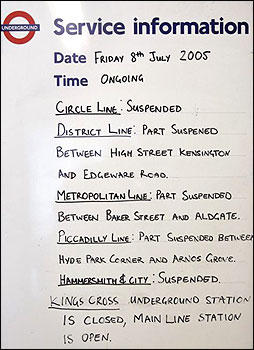 UNDERGROUND
Service information
Date FRIDAY 8th JULY 2005
Time ONGOING
CIRCLE LINE: SUSPENDED
DISTRICT LINE: PART SUSPENED
BETWEEN HIGH STREET KENSINGTON
AND EDGEWARE ROAD.
METROPOLITAN LINE: PART SUSPENDED
BETWEEN BAKER STREET AND ALDGATE.
PICCADILLY LINE: PART SUSPENDED BETWEEN
HYDE PARK CORNER AND ARNOS GROVE.
HAMMERSMITH & CITY: SUSPENDED.
KINGS CROSS UNDERGROUND STATION
IS CLOSED, MAIN LINE STATION
IS OPEN.